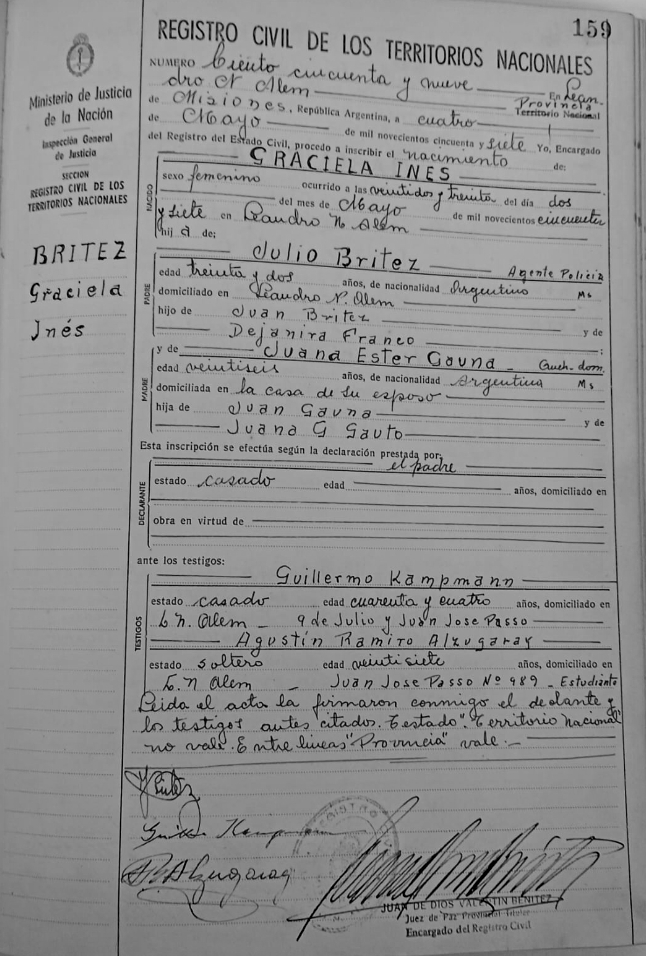 159
REGISTRO CIVIL DE LOS TERRITORIOS NACIONALES
Ministerio de Justicia
de la Nación
Inspección General
de Justicia
SECCION
REGISTRO CIVIL DE LOS
TERRITORIOS NACIONALES
BRITEZ
Graciela
Inés
NUMERO Ciento cincuenta y nueve En Lean-
dro N Alem Provincia Territorio Nacional
de Misiones, República Argentina, a cuatro
de Mayo de mil novecientos cincuenta y siete Yo, Encargado
del Registro del Estado Civil, procedo a inscribir el nacimiento de:
GRACIELA INES
NACIDO
sexo femenino ocurrido a las veintidos y treinta del día dos
del mes de Mayo de mil novecientos cincuenta
y siete en Leandro N. Alem
hij a de:
Julio Britez Agente Policia
PADRE
edad treinta y dos años, de nacionalidad Argentino Ms
domiciliado en Leandro N. Alem
hijo de Juan Britez y de
Dejanira Franco ;
y de Juana Ester Gauna - Queh. dom.
MADRE
edad veintiseis años, de nacionalidad Argentina Ms
domiciliada en la casa de su esposo
hija de Juan Gauna y de
Juana G Gauto
Esta inscripción se efectúa según la declaración prestada por
el padre
DECLARANTE
estado casado edad años, domiciliado en
obra en virtud de
ante los testigos:
Guillermo Kampmann
TESTIGOS
estado casado edad cuarenta y cuatro años, domiciliado en
L. N. Alem - 9 de Julio y Juan Jose Passo
Agustín Ramiro Alzugaray
estado soltero edad veintisiete años, domiciliado en
L. N Alem - Juan Jose Passo Nº 989 - Estudiante
Leida el acta la firmaron conmigo el declante y
los testigos antes citados. Testado "Territorio Nacional"
no vale. Entre lineas "Provincia" vale.-
JUAN DE DIOS VALENTIN BENITEZ
Juez de Paz Provincial Titular
Encargado del Registro Civil